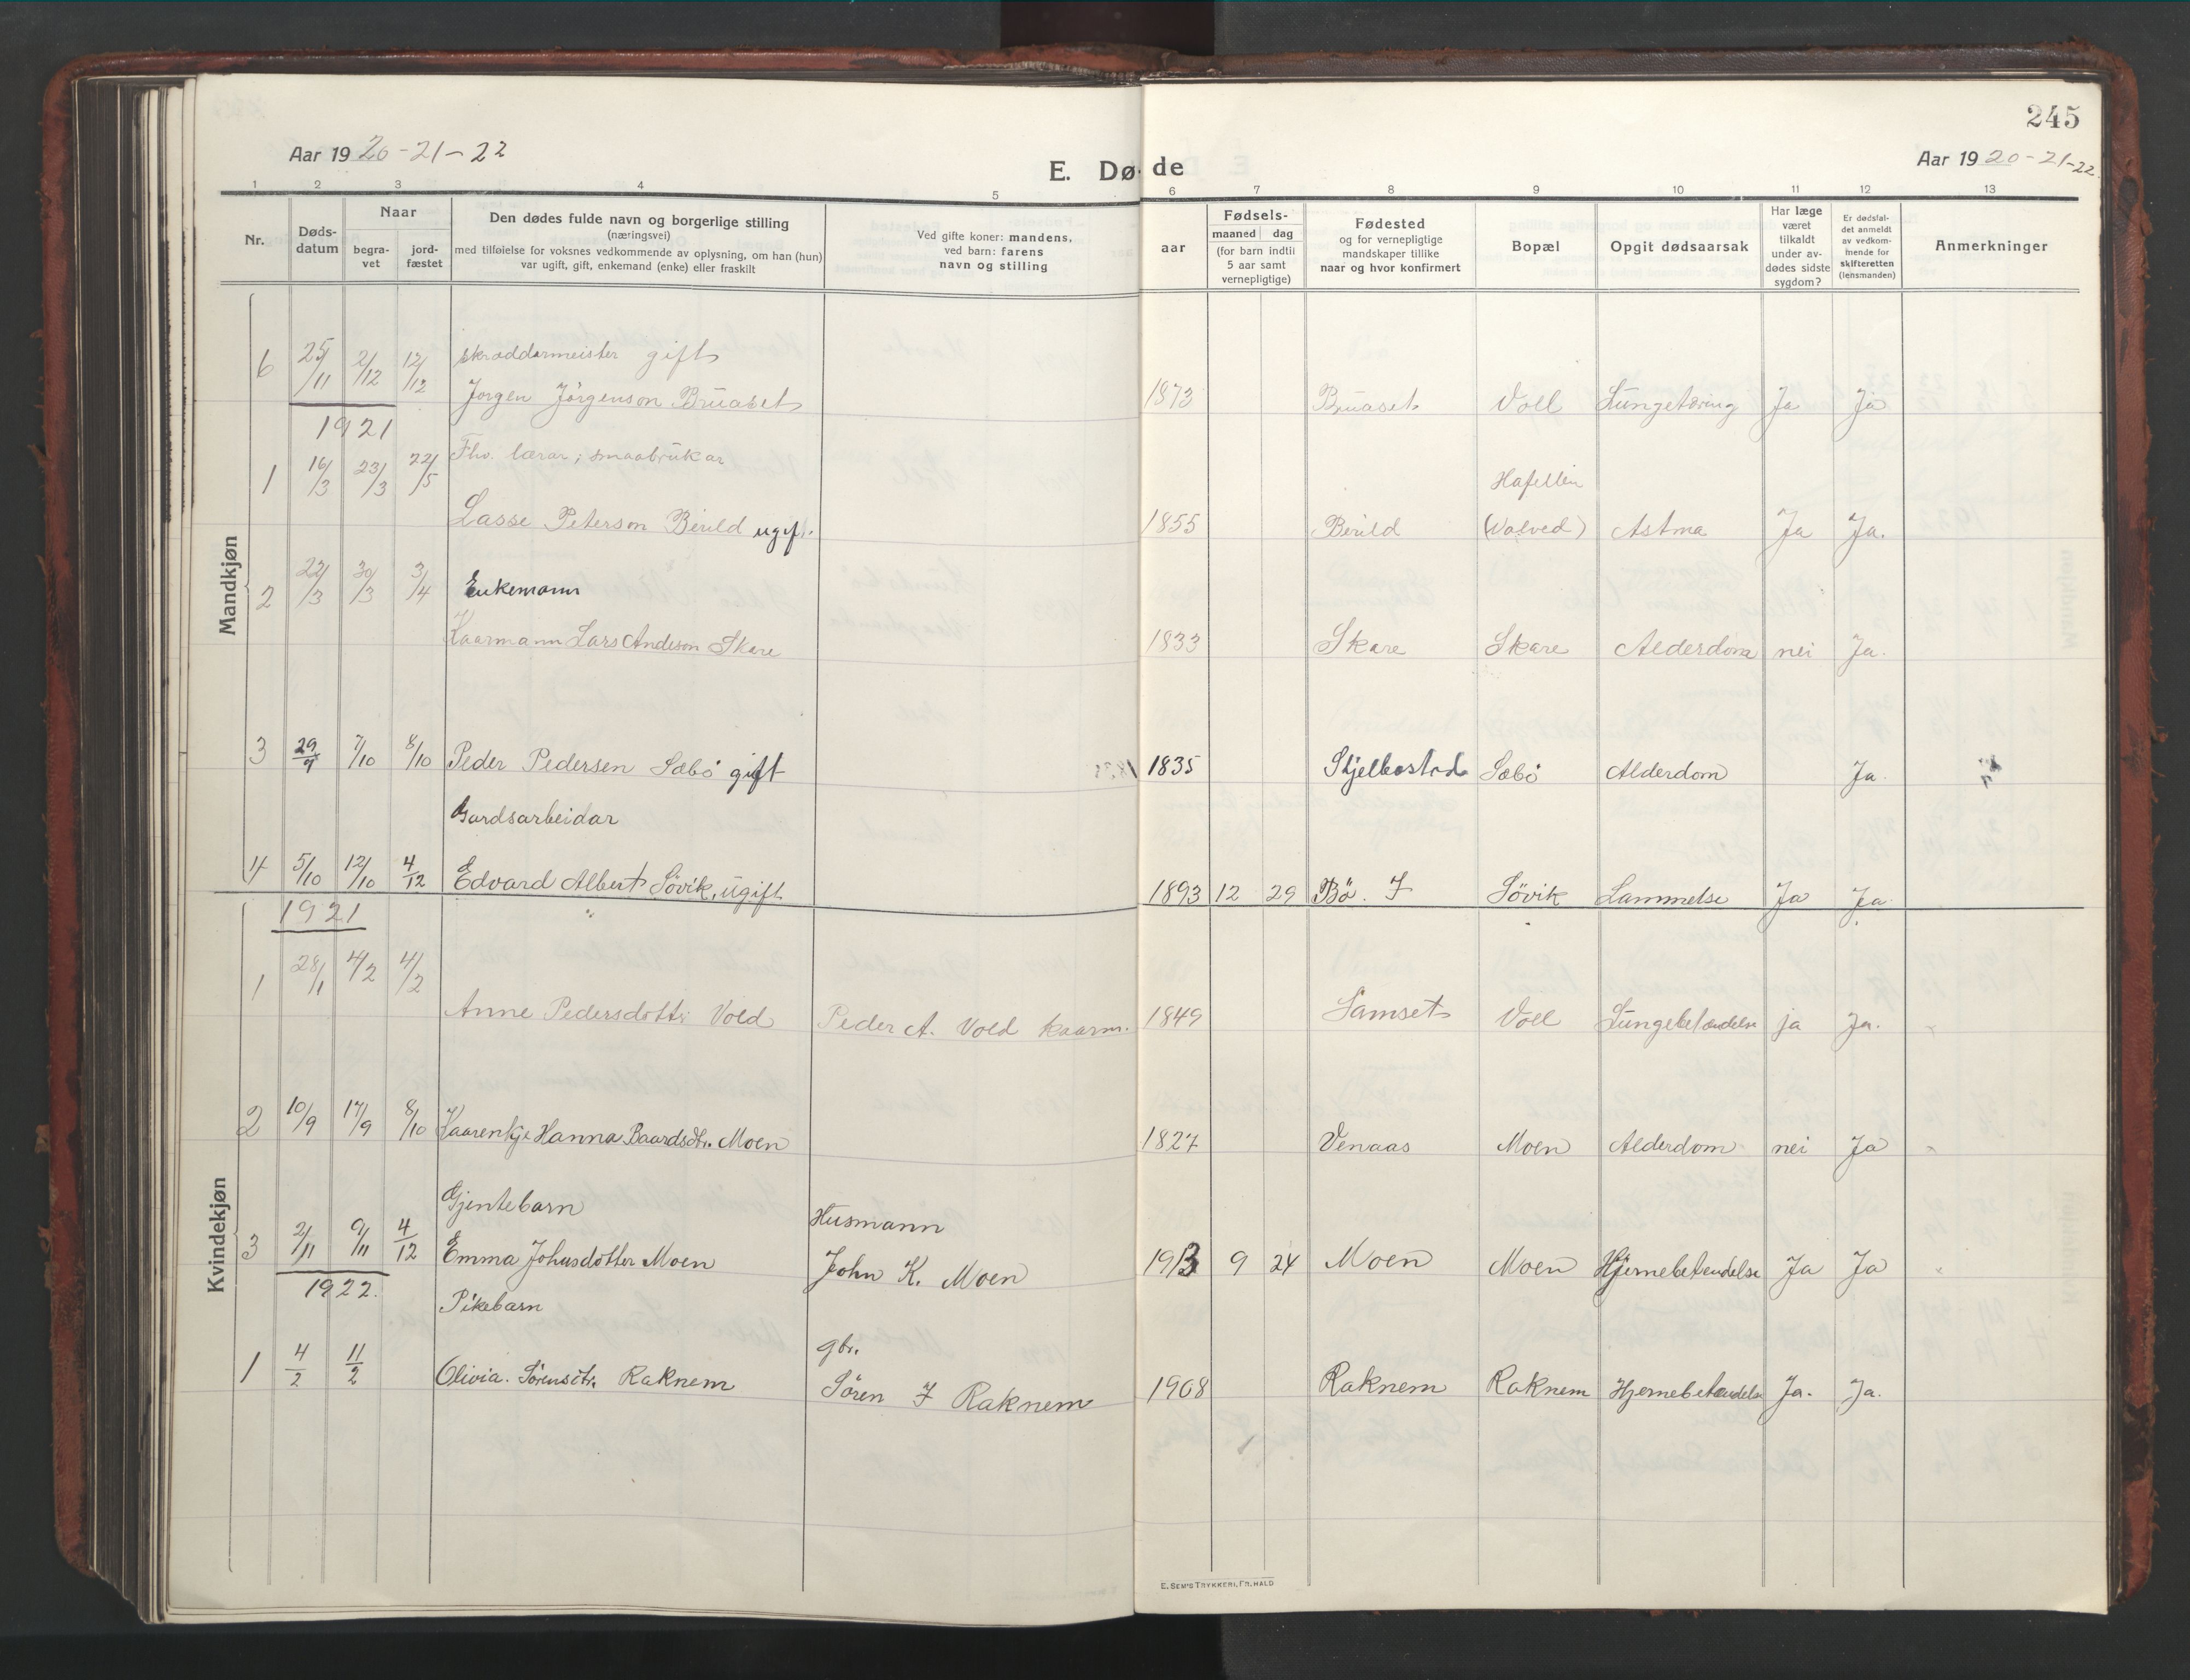 245
Aar 1920-21-22
Aar 1920-21-22.
E. Døde
1 2 3 4 5 6 7 8 9 10 11 12 13
Nr.
Døds-
datum
Naar
begra-
vet
jord-
fæstet
Den dødes fulde navn og borgerlige stilling
(næringsvei)
med tilføielse for voksnes vedkommende av oplysning, om han (hun)
var ugift, gift, enkemand (enke) eller fraskilt
Ved gifte koner: mandens,
ved barn: farens
navn og stilling
Fødsels-
aar
maaned dag
(for barn indtil
5 aar samt
vernepligtige)
Fødested
og for vernepligtige
mandskaper tillike
naar og hvor konfirmert
Bopæl
Opgit dødsaarsak
Har læge
været
tilkaldt
under av-
dødes sidste
sygdom?
Er dødsfal-
det anmeldt
av vedkom-
mende for
skifteretten
(lensmanden)
Anmerkninger
Mandkjøn
skræddermeister gift
6 25/11 2/12 12/12 Jørgen Jörgenson Brüaset 1873 Brüaset Voll Lungetæring Ja Ja
1921
Fhv. lærar; smaabrükar
Hafellin
1 16/3 23/3 22/5 Lasse Peterson Berild ugift. 1855 Berild (Valved) Astma Ja Ja.
Enkemann
2 22/3 30/3 3/4 Kaarmann Lars Anderson Skare 1833 Skare Skare Alderdom nei Ja.
3 29/9 7/10 8/10 Peder Pedersen Sæbö gift 1835 Skjelbostad Sæbö Alderdom Ja.
Gardsarbeidar
4 5/10 12/10 4/12 Edvard Albert Sövik, ügift 1893 12 29 Bö. I Sövik Lammelse Ja Ja.
Kvindekjøn
1921
1 28/1 4/2 4/2 Anne Pedersdotter Vold Peder A. Vold kaarm. 1849 Samset Voll Lungebetændelse ja Ja.
2 10/9 17/9 8/10 Kaarenkje Hanna Baardsdtr. Moen 1827 Venaas Moen Alderdom nei Ja
Gjentebarn Husmann
3 2/11 9/11 4/12 Emma Johnsdotter Moen John K. Moen 1913 9 24 Moen Moen Hjernebetendelse Ja Ja
1922.
Pikebarn gbr.
1 4/2 11/2 Olivia Sørensdtr. Raknem Sören I Raknem 1908 Raknem Raknem Hjernebetændelse Ja. Ja.
E. SEM'S TRYKKERI, FR. HALD